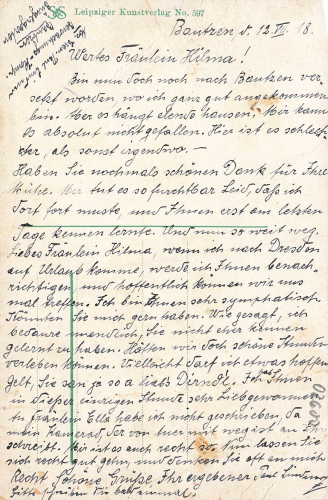 Leipziger Kunstverlag No. 597
Bautzen d. 12. VII. 18.
Wertes Fräulein Hilma!
Bin nun doch noch nach Bautzen ver-
setzt worden, wo ich ganz gut angekommen
bin. Aber es hängt elende hausen. Mir kann
es absolut nicht gefallen. Hier ist es schlech-
ter, als sonst irgendwo. —
Haben Sie nochmals schönen Dank für Ihre
Mühe. Mir tut es so furchtbar Leid, daß ich
dort fort musste, und Ihnen erst am letzten
Tage kennen lernte. Und nun so weit weg.
Liebes Fräulein Hilma, wenn ich nach Dresden
auf Urlaub komme, werde ich Ihnen benach-
richtigen und hoffentlich können wir uns
mal treffen. Ich bin Ihnen sehr symphatisch
Könnten Sie mich gern haben. Wie gesagt, ich
bedaure unendlich, Sie nicht eher kennen
gelernt zu haben. Hätten wir doch schöne Stunden
verleben können. Vielleicht darf ich etwas hoffen
Gelt, Sie san ja so a liebs Dirndl. Ich Ihnen
in dieser einzigen Stunde sehr Liebgewonnen
An fräulein Ella habe ich nicht geschrieben, da
mein Kamerad, der von hier mit weg ist an Sie
schreibt. Mir ist es auch recht so. Nun lassen Sie
sich recht gut gehn, und denken Sie oft an mich
Recht schöne Grüße Ihr ergebener Paul
Bitte schreiben Sie bald einmal.